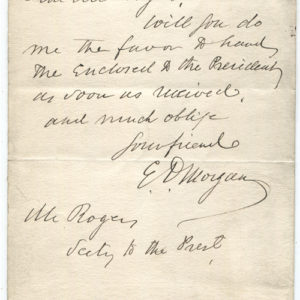 will you do
me the favor to hand
the Enclosed to the President
as soon as received
and much oblige
Your friend
E. D. Morgan
Mr Rogers
Secty to the Prest